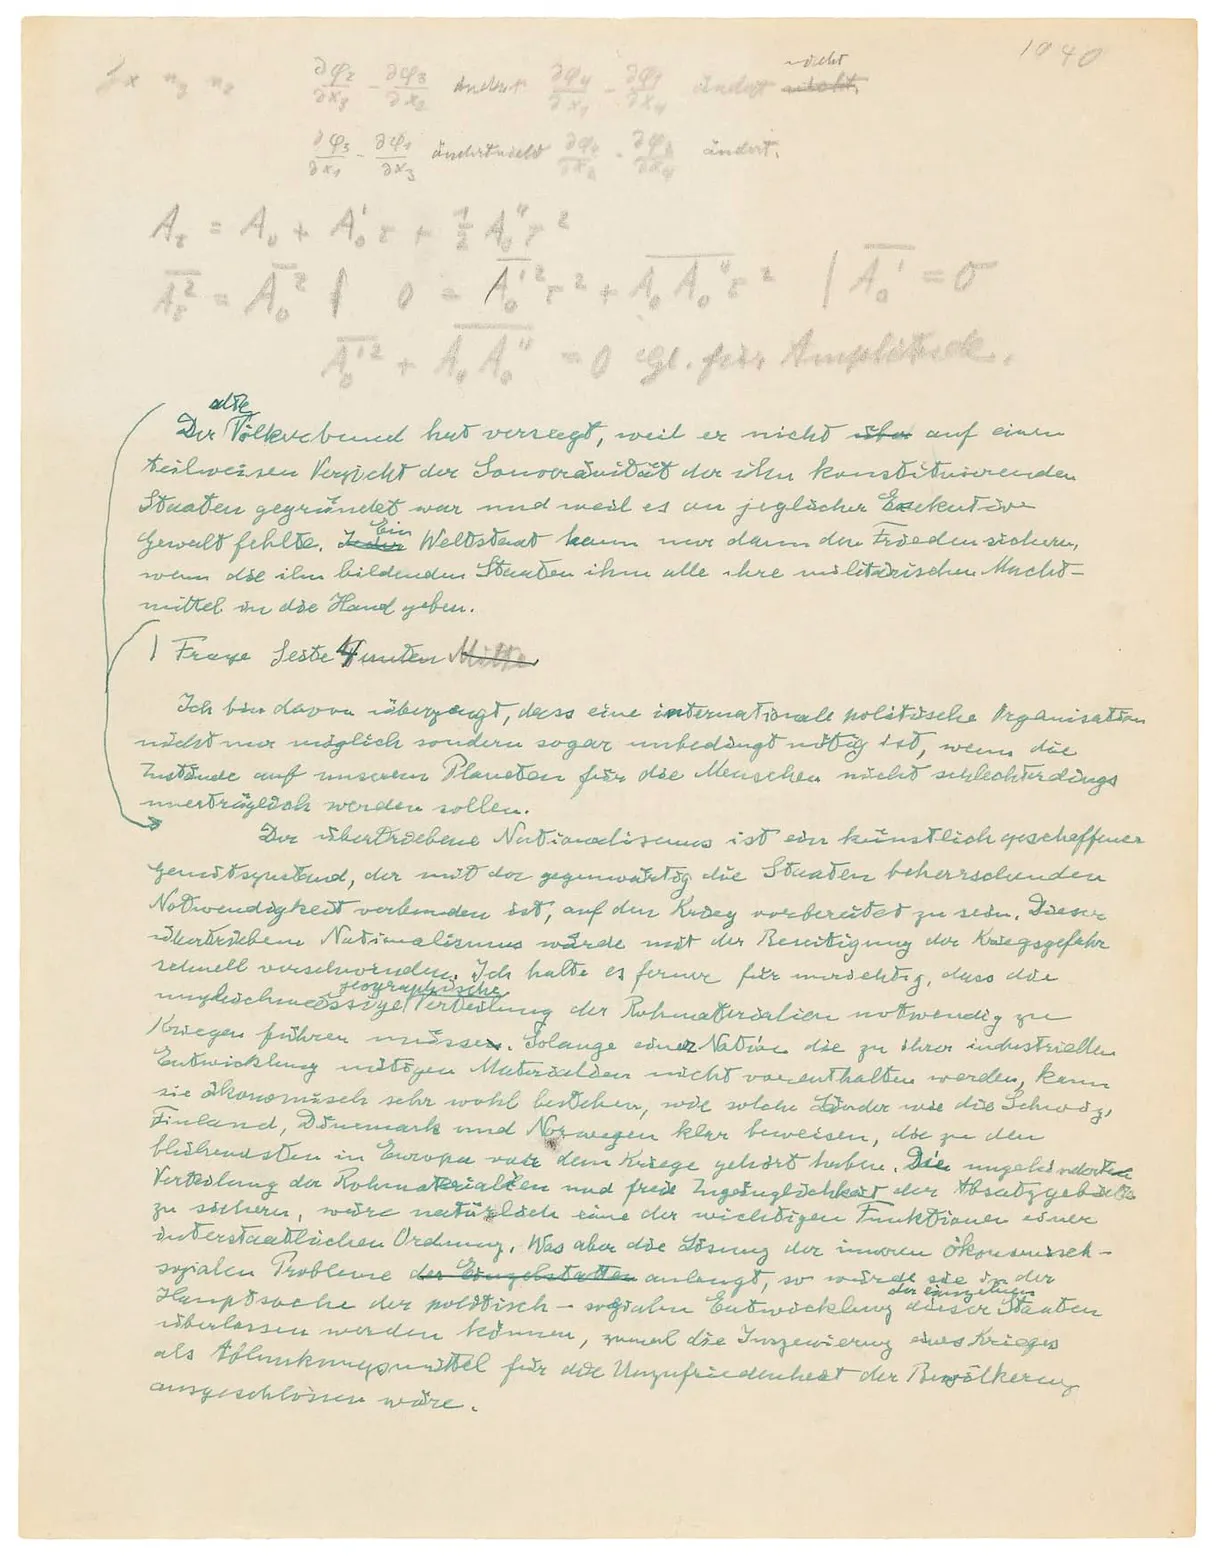 1940
nicht
∂φ₂/∂x₃ - ∂φ₃/∂x₂ ändert ∂φ₄/∂x₁ - ∂φ₁/∂x₄ ändert nicht.
∂φ₃/∂x₁ - ∂φ₁/∂x₃ ändert nicht ∂φ₄/∂x₂ - ∂φ₂/∂x₄ ändert.
A_τ = A₀ + A₀' τ + 1/2 A₀'' τ²
A_τ² = A₀² | 0 = A₀'² τ² + A₀ A₀'' τ² | A₀' = 0
A₀'² + A₀ A₀'' = 0 Gl. für Amplitude.
Der Völkerbund hat versagt, weil er nicht über auf einen
teilweisen Verzicht der Souveränität der ihn konstituierenden
Staaten gegründet war und weil es an jeglicher Exekutiv
Ein
Gewalt fehlte. Weltstaat kann nur dann den Frieden sichern,
wenn die ihn bildenden Staaten ihm alle ihre militärischen Macht-
mittel in die Hand geben.
Frage Seite 4 unten Mitte
Ich bin davon überzeugt, dass eine internationale politische Organisation
nicht nur möglich sondern sogar unbedingt nötig ist, wenn die
Zustände auf unserem Planeten für die Menschen nicht schlechterdings
unerträglich werden sollen.
Der übertriebene Nationalismus ist ein künstlich geschaffener
Gemütszustand, der mit der gegenwärtig die Staaten beherrschenden
Notwendigkeit verbunden ist, auf den Krieg vorbereitet zu sein. Dieser
übertriebene Nationalismus würde mit der Beseitigung der Kriegsgefahr
schnell verschwinden. Ich halte es ferner für unrichtig, dass die
geographische
ungleichmässige Verteilung der Rohmaterialien notwendig zu
Kriegen führen müsse. Solange einer Nation die zu ihrer industriellen
Entwicklung nötigen Materialien nicht vorenthalten werden, kann
sie ökonomisch sehr wohl bestehen, wie solche Länder wie die Schweiz,
Finland, Dänemark und Norwegen klar beweisen, die zu den
blühendsten in Europa vor dem Kriege gehört haben. Die ungehinderte
Verteilung der Rohmaterialien und freie Zugänglichkeit der Absatzgebiete
zu sichern, wäre natürlich eine der wichtigen Funktionen einer
interstaatlichen Ordnung. Was aber die Lösung der inneren ökonomisch-
sozialen Probleme der Einzelstaaten anlangt, so würde sie in der
der einzelnen
Hauptsache der politisch-sozialen Entwicklung dieser Staaten
überlassen werden können, zumal die Inszenierung eines Krieges
als Ablenkungsmittel für die Unzufriedenheit der Bevölkerung
ausgeschlossen wäre.